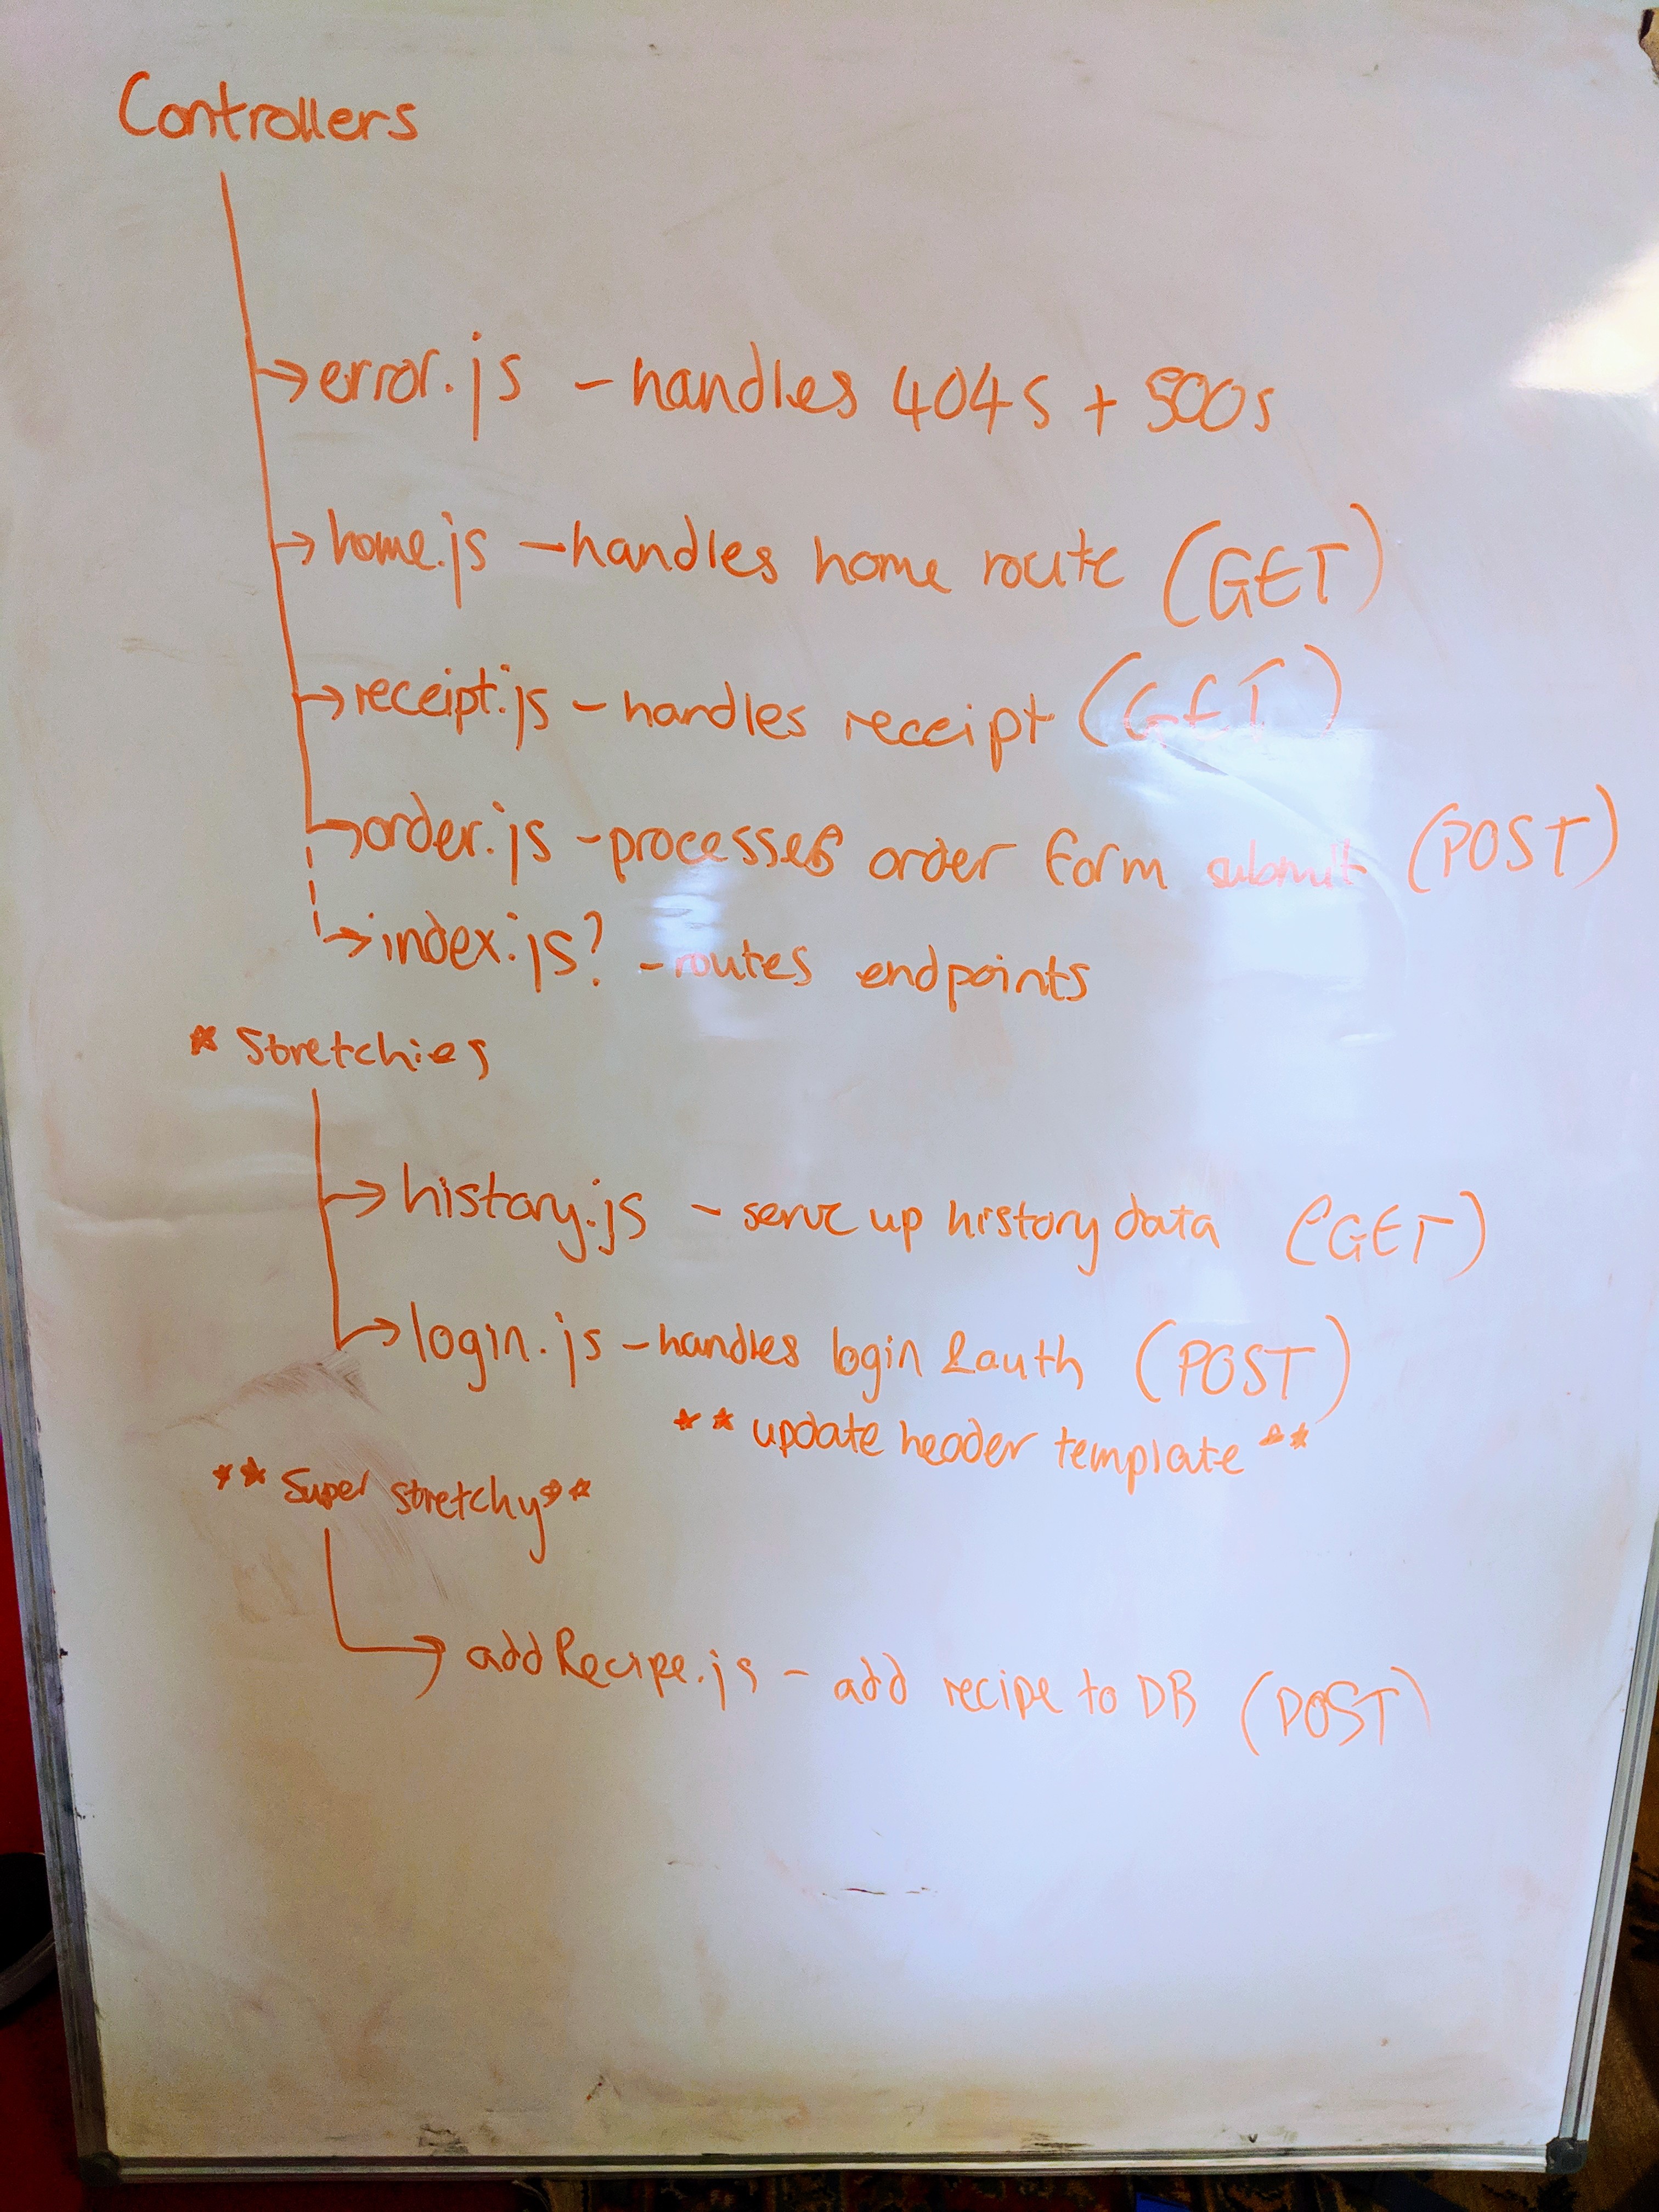 Controllers
error.js - handles 404s + 500s
home.js - handles home route (GET)
receipt.js - handles receipt (GET)
order.js - processes order form submit (POST)
index.js? - routes endpoints
* Stretchies
history.js - serve up history data (GET)
login.js - handles login & auth (POST)
** update header template **
** Super stretchy **
addRecipe.js - add recipe to DB (POST)